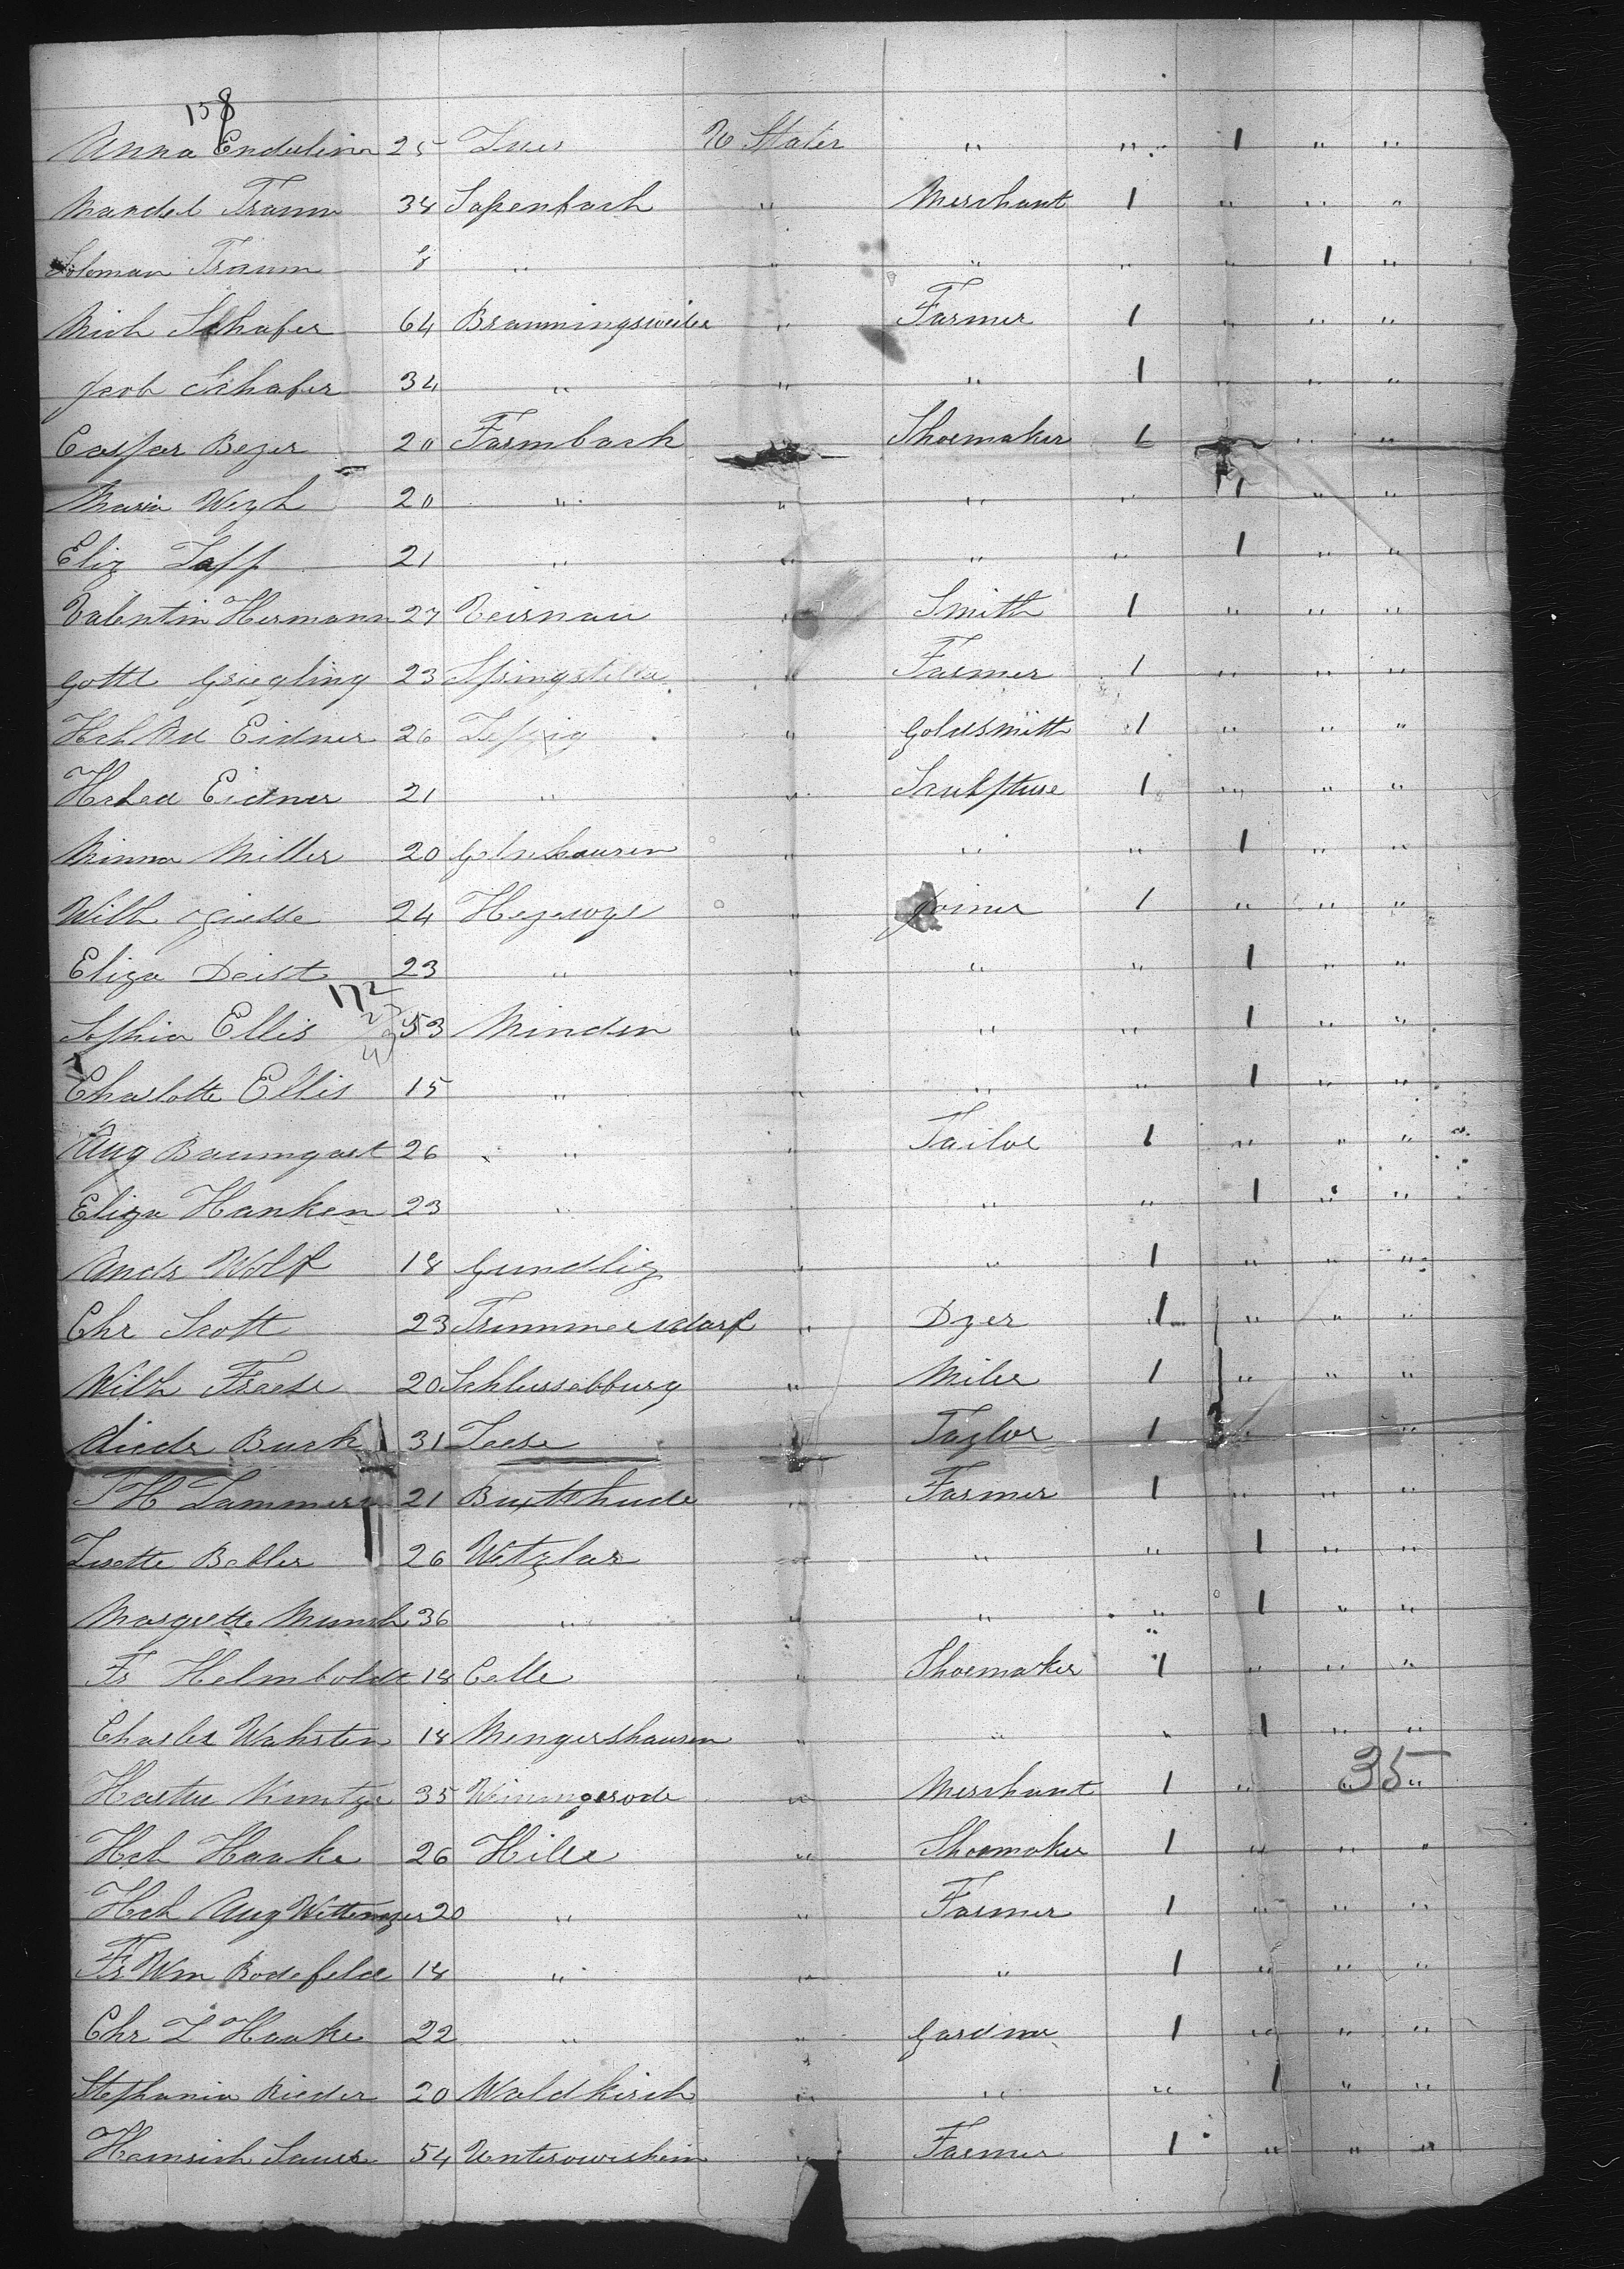 158
Anna Enduline 25 Ines U States " " 1 " "
Mandel Traum 34 Sassenbach " Merchant 1 " " "
Soloman Traum 8 " " " " " 1 "
Mich Schafer 64 Branningsweiler " Farmer 1 " " "
Jacob Schafer 34 " " " 1 " " "
Caspar Bezer 20 Farmbach " Shoemaker 1 " " "
Maria Weyh 20 " " " " 1 " "
Eliz Sapp 21 " " " " 1 " "
Valentin Hermann 27 Veirnau " Smith 1 " " "
Gottl Griegling 23 Springstille " Farmer 1 " " "
Hch Rd Eidner 26 Lepzig " Goldsmith 1 " " "
Eidner 21 " " Sculpture 1 " " "
Minna Miller 20 Gelnhausen " " " 1 " "
Wilh Giesse 24 " Joiner 1 " " "
Eliza Deist 23 " " " " 1 " "
172
Sophia Ellis 53 Minden " " " 1 " "
Charlotte Ellis 15 " " " " 1 " "
Aug Baumgart 26 " " Tailor 1 " " "
Eliza Hanken 23 " " " " 1 " "
Andr Wolf 18 Gundliz " " 1 " " "
Chr Scott 23 Trummersdorf " Dyer 1 " " "
Wilh Freese 20 Schlussebburg " Miler 1 " " "
Diedr Buck 31 Leese " Taylor 1 " " "
J H Lammers 21 Buxtehude " Farmer 1 " " "
Lisette Bebler 26 Wetzlar " " " 1 " "
Margrette Munch 36 " " " " 1 " "
Fr Helmboldt 18 Celle " Shoemaker 1 " " "
Charles Wahsten 18 Mengershausen " " " 1 " "
Kuntze 35 Winningerode " Merchant 1 " " "
35
Hch Haake 26 Hille " Shoemaker 1 " " "
Hch Aug Wittemeyer 20 " " Farmer 1 " " "
Fr Wm Rodefeld 18 " " " 1 " " "
Chr L Haake 22 " " Gardner 1 " " "
Stephania Rieder 20 Waldkirch " " " 1 " "
Heinrich Sauer 54 Unterowisheim " Farmer 1 " " "